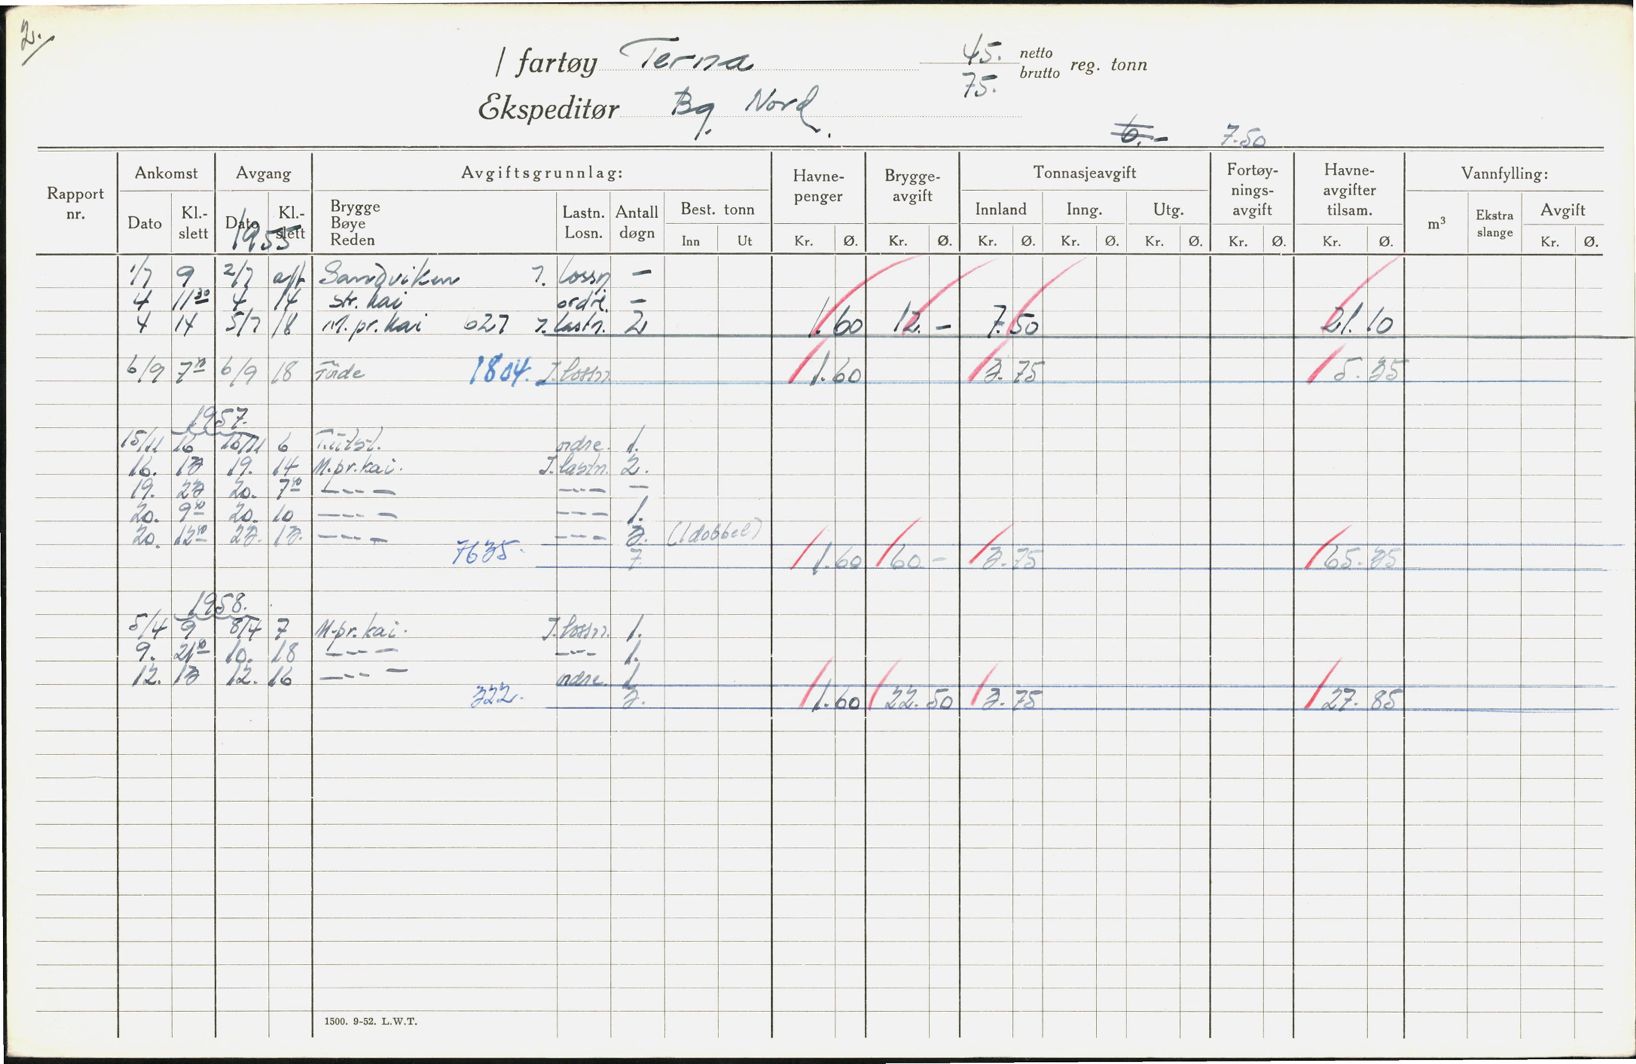 2.
/ fartøy Terna 45. netto
75. brutto reg. tonn
Ekspeditør Bg. Nord.
6.- 7.50
Rapport nr. Ankomst Avgang Avgiftsgrunnlag: Havne-penger Brygge-avgift Tonnasjeavgift Fortøy-nings-avgift Havne-avgifter tilsam. Vannfylling:
Dato Kl.-slett Dato Kl.-slett Brygge Bøye Reden Lastn. Losn. Antall døgn Best. tonn Innland Inng. Utg. m³ Ekstra slange Avgift
Inn Ut Kr. Ø. Kr. Ø. Kr. Ø. Kr. Ø. Kr. Ø. Kr. Ø. Kr. Ø. Kr. Ø.
1955
1/7 9 2/7 aft Sandviken I. lossn —
4 11 30 4 14 Str. kai ordre —
4 14 5/7 18 M.pr.kai 627 I. lastn. 2 1.60 12.- 7.50 21.10
6/9 7 6/9 18 1804. I. lossn. 1.60 3.75 5.35
1957.
15/11 16 16/11 6 ordre. 1.
16. 13 19. 14 M.pr.kai. I. lastn. 2.
19. 23 20. 7 — — — — — — —
20. 9 20. 10 — — — — — — 1.
20. 12 23. 13. — — — — — — 3. (1 dobbel)
7635. 7 1.60 60- 3.75 65.35
1958.
5/4 9 8/4 7 M.pr.kai. I. lossn. 1.
9. 21 10. 18 — — — — — — 1.
12. 13 12. 16 — — — ordre. 1
322. 3. 1.60 22.50 3.75 27.85
1500. 9-52. L.W.T.